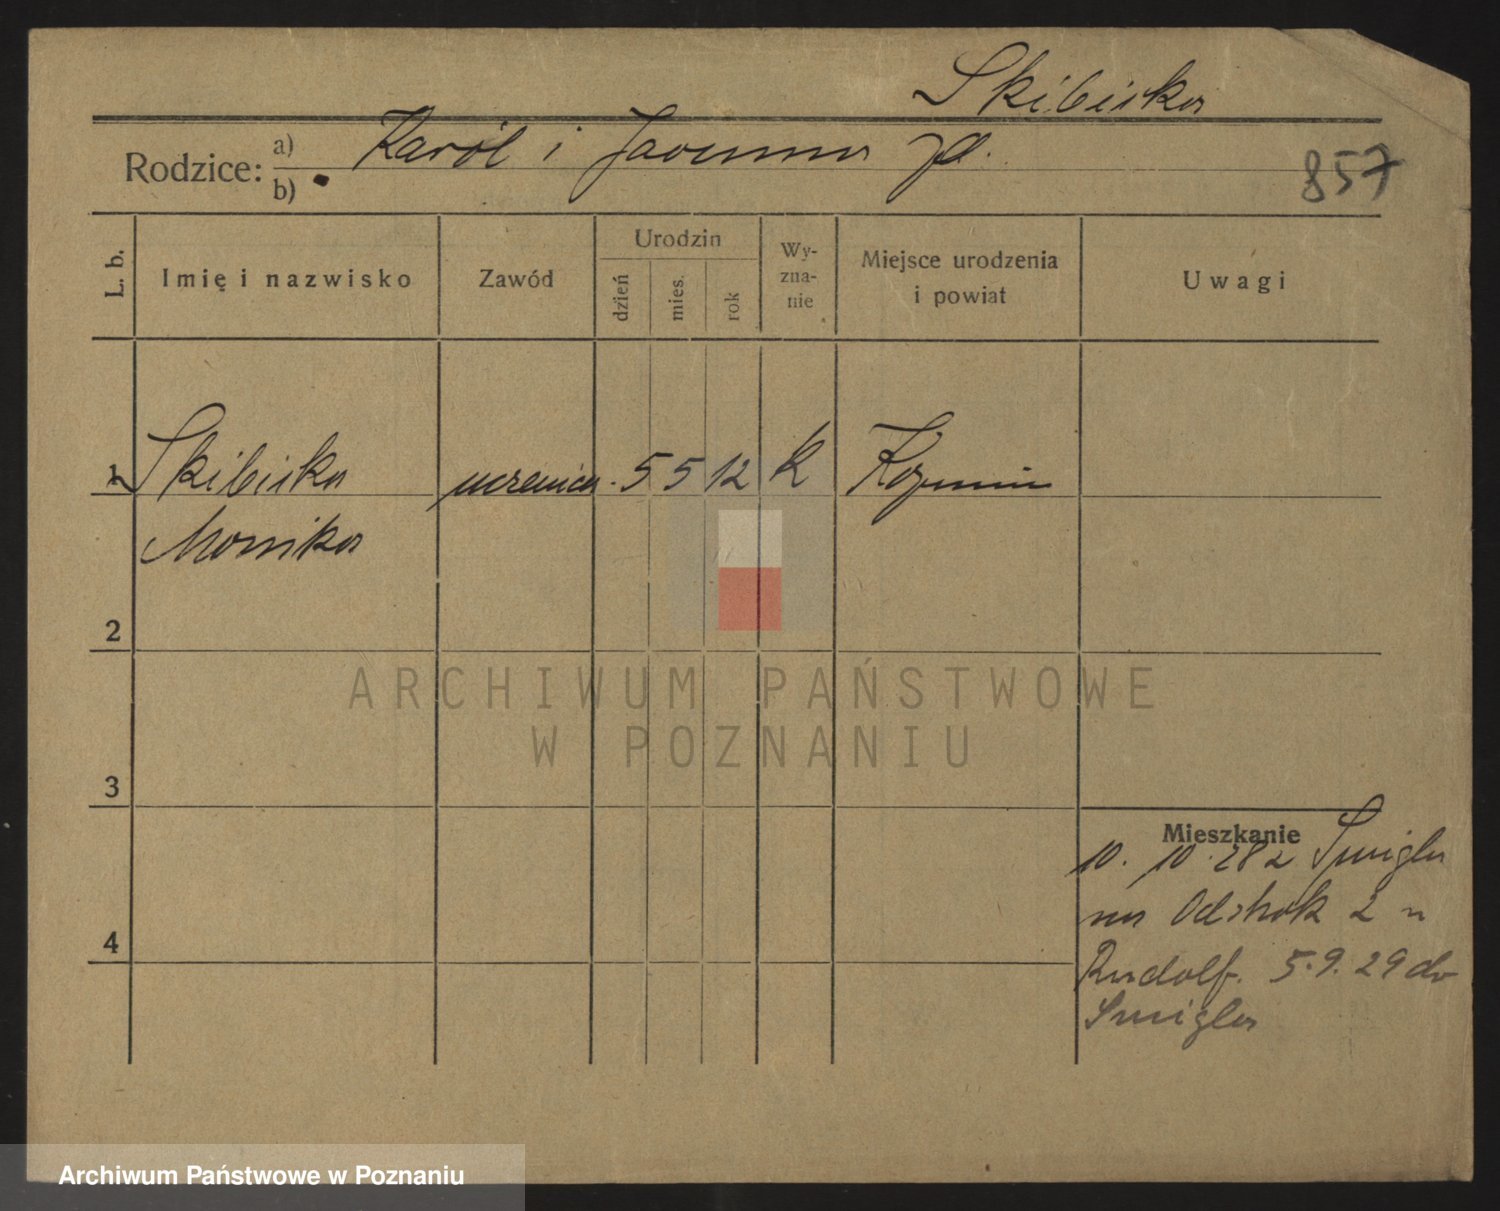 Skibiska
Rodzice: a) Karól i Joanna
b)
857
L. b. Imię i nazwisko Zawód Urodzin dzień mies. rok Wy-zna-nie Miejsce urodzenia i powiat Uwagi
1 Skibiska uczenica 5 5 12 K Kozmin
Monika
2
ARCHIWUM PAŃSTWOWE
W POZNANIU
3
Mieszkanie
10. 10. 28 z Smigla
na 2
Rudolf. 5.9.29 do
Smigla
4
Archiwum Państwowe w Poznaniu